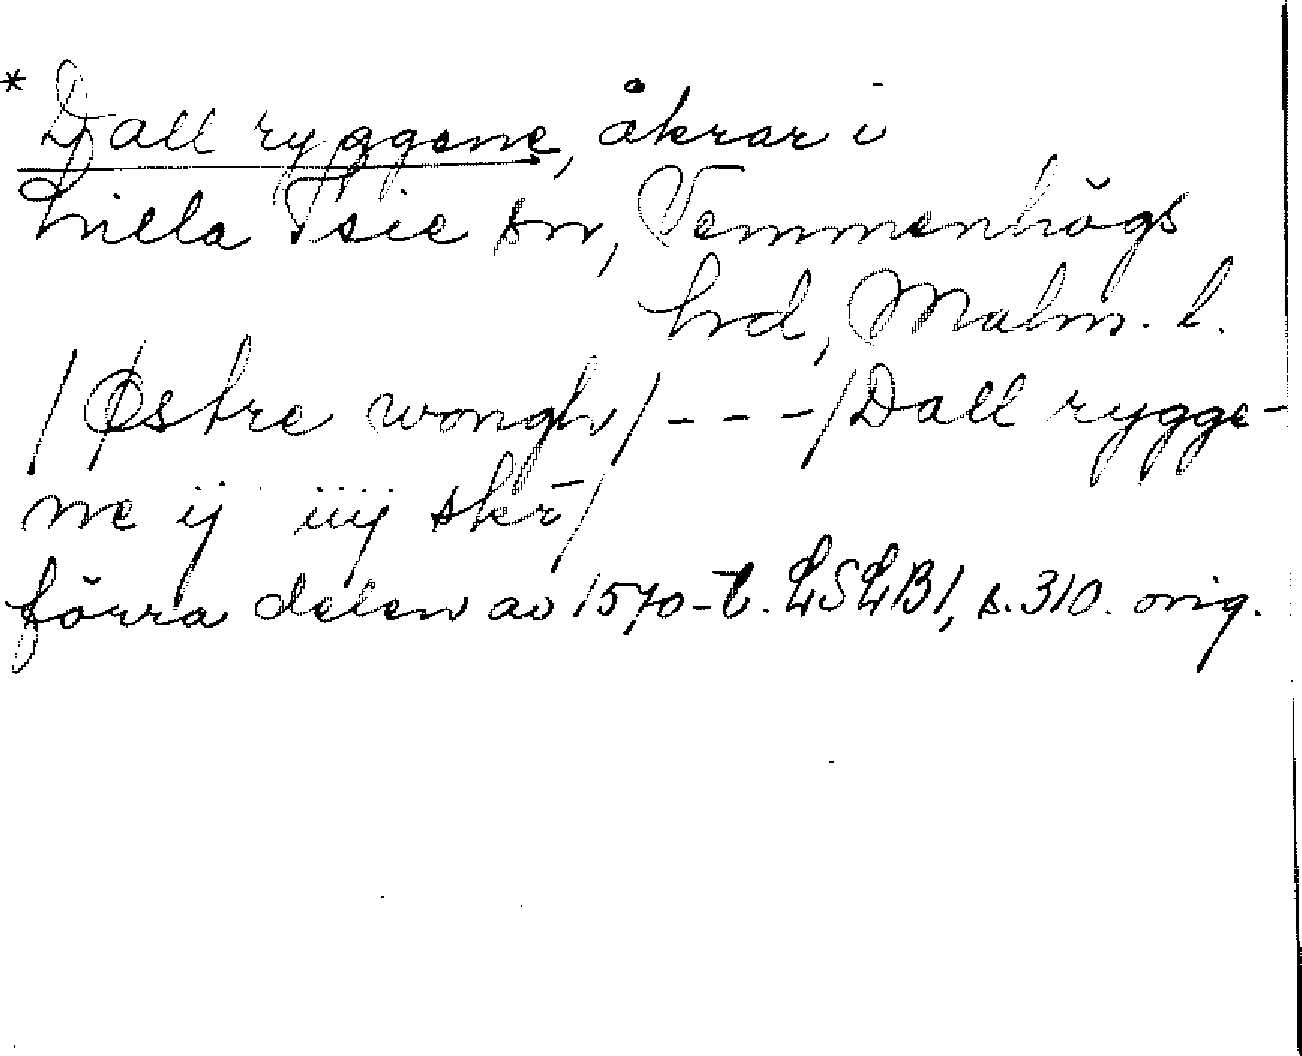 * Dall ryggene, åkrar i
Lilla Isie sn, Vemmenhögs
hrd, Malm. l.
/Østre wongh/---/Dall rygge-
ne ij iiij skr̄/
förra delen av 1570-t. LSLB1, s. 310. orig.